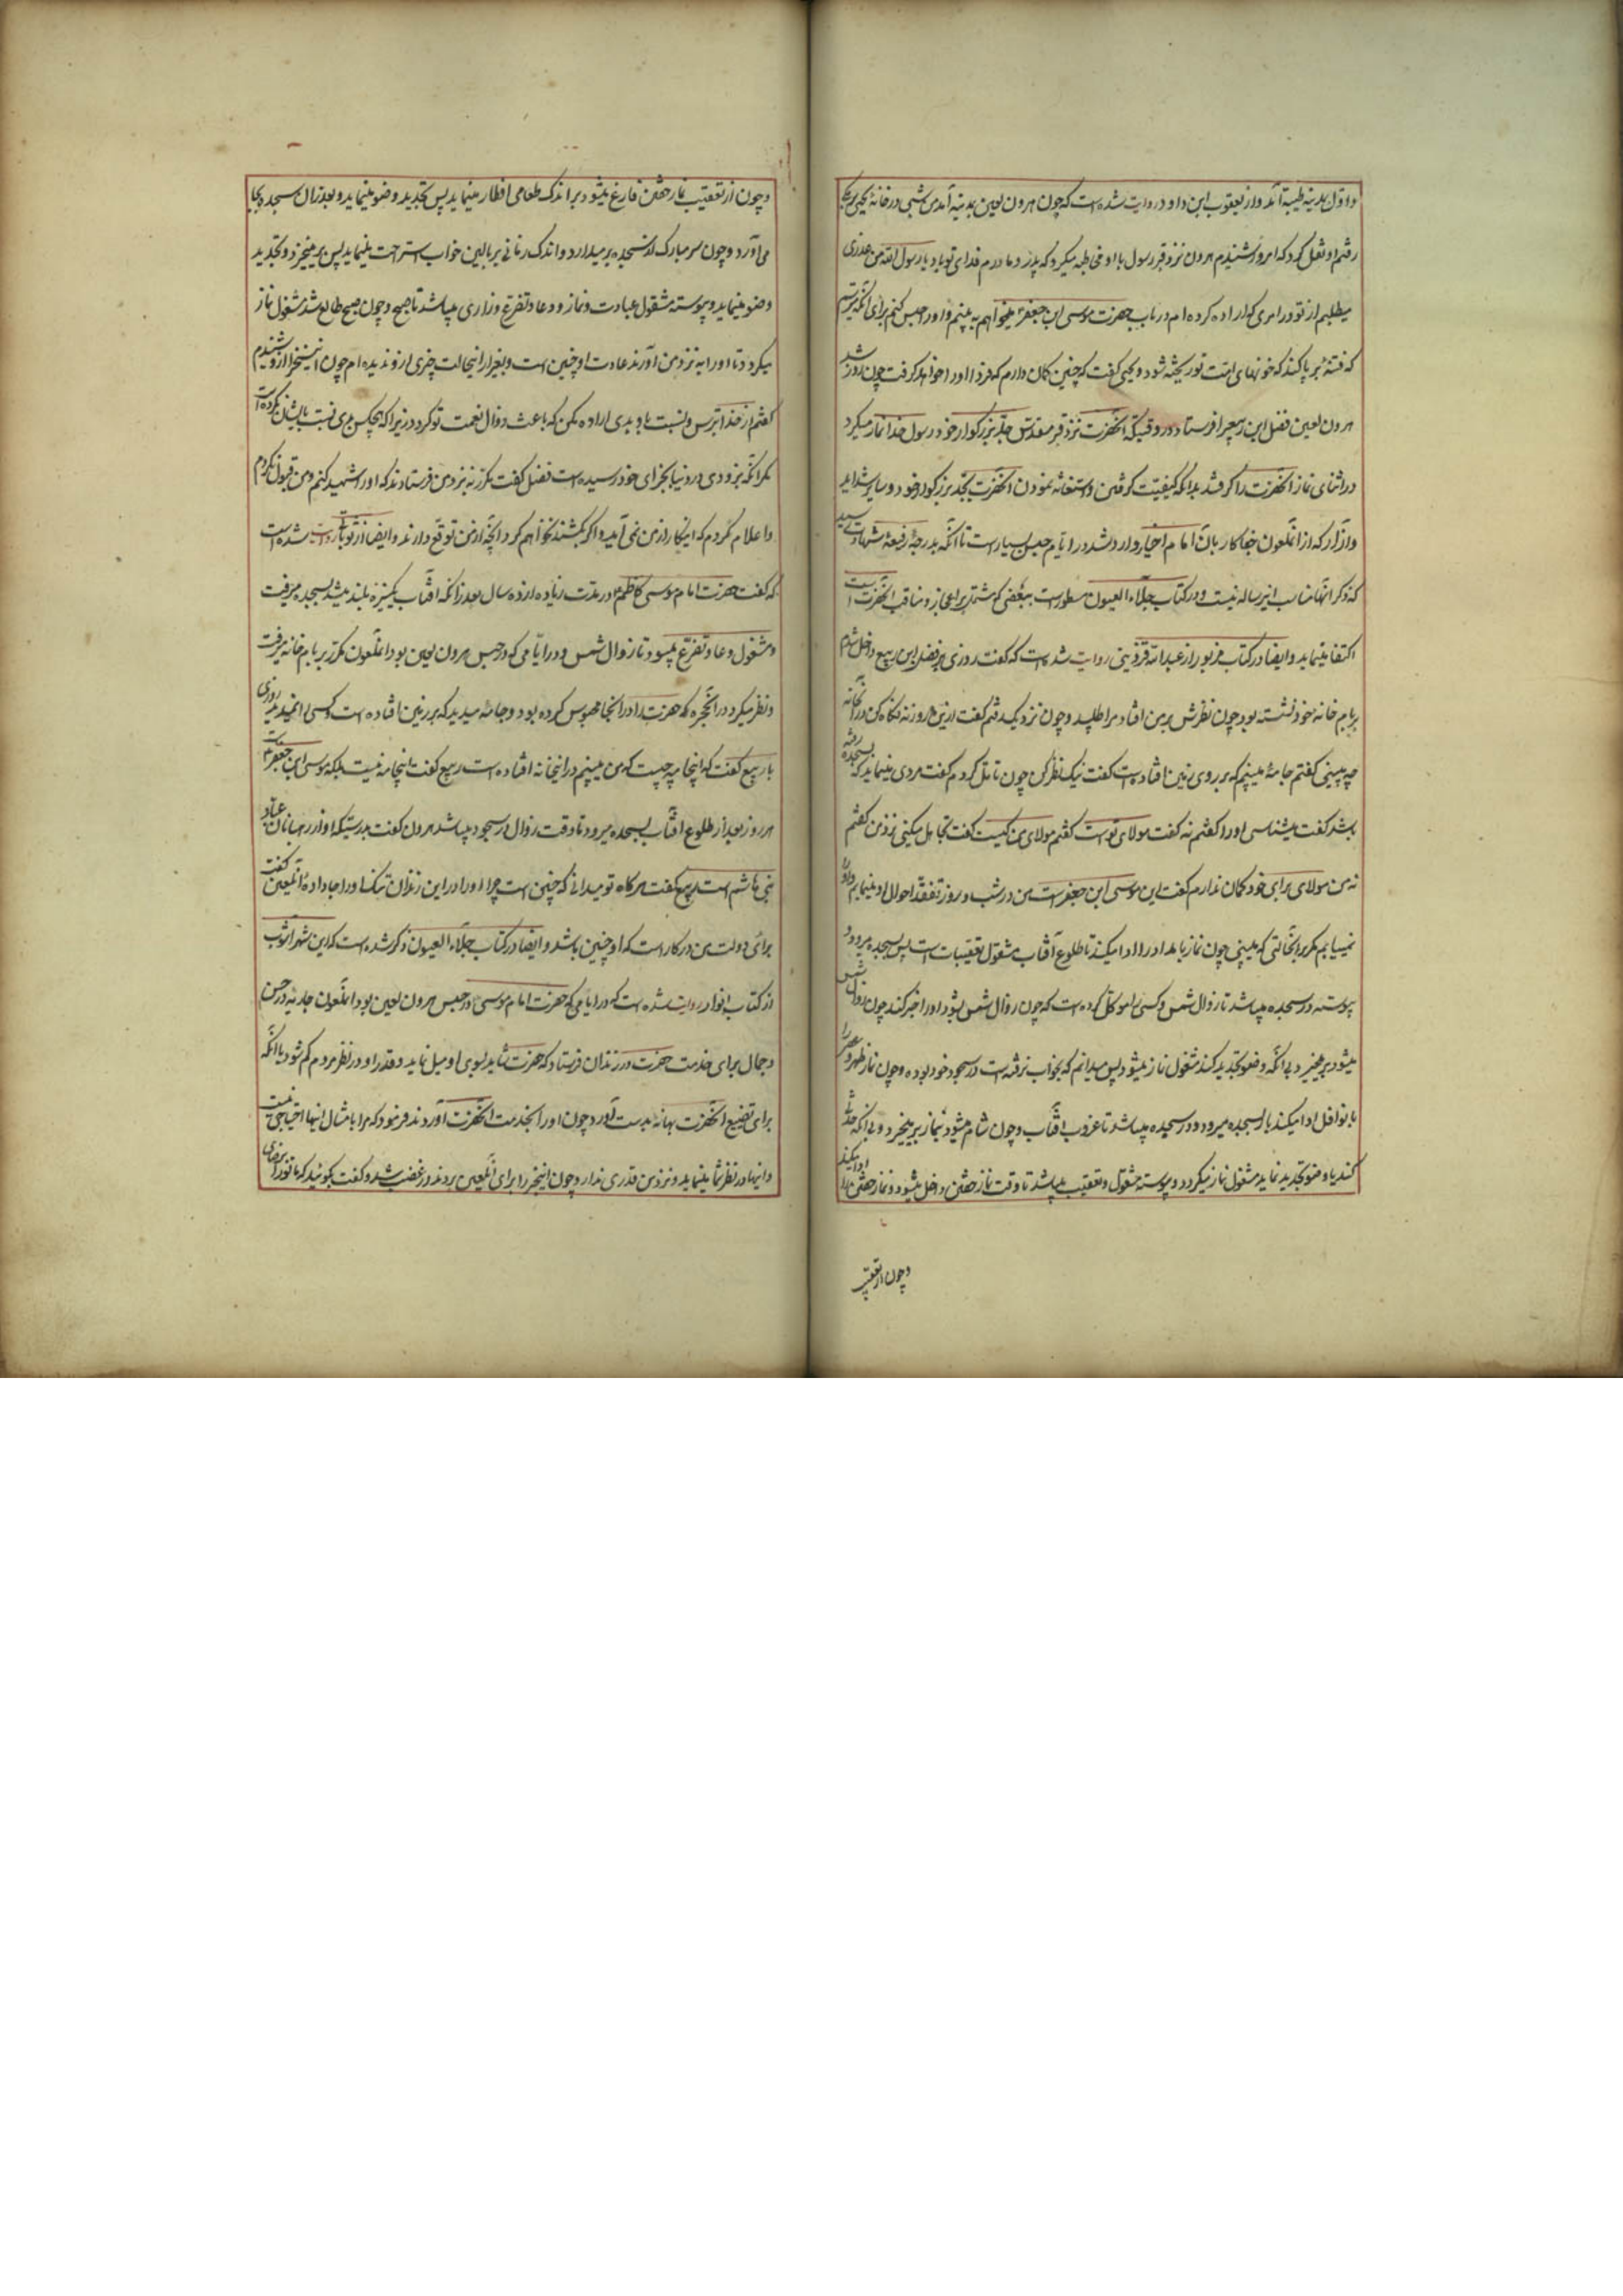 و اول بمدینه طیبه آمد و از یعقوب ابن داود روایت شده است که چون هرون لعین بمدینه آمد من شبی در خانه یحیی برمکی
رفتم او نقل کرد که امروز شنیدم هرون نزد قبر رسول با او مخاطبه میکرد که پدر و مادرم فدای تو باد یا رسول الله من عذری
میطلبم از تو در امری که اراده کرده ام در باب حضرت موسی ابن جعفر میخواهم به بینم و او را حبس کنم برای آنکه میترسم
که فتنه برپا کند که خونهای امت تو ریخته شود و یحیی گفت که چنین گمان دارم که فردا او را خواهد گرفت چون روز شد
هرون لعین فضل ابن ربیع را فرستاد در وقتیکه آنحضرت نزد قبر مقدس جد بزرگوار خود رسول خدا نماز میکرد
در اثنای نماز آنحضرت را گرفتند بدانکه کیفیت گرفتن و استغاثه نمودن آنحضرت بجد بزرگوار خود و سایر شداید
و آزار که از آنملعون جفا کار بآن امام اخیار وارد شد در ایام حبس بسیار است تا آنکه بدرجه رفیعه شهادت رسید
که ذکر آنها مناسب این رساله نیست و در کتاب جلاء العیون مسطور است ببعضی که مشتمل بر اعجاز و مناقب آنحضرت است
اکتفا مینماید و ایضا در کتاب مزبور از عبدالله قزوینی روایت شده است که گفت روزی بر فضل ابن ربیع داخل شدم
بر بام خانه خود نشسته بود چون نظرش بر من افتاد مرا طلبید و چون نزدیک رفتم گفت ازین روزنه نگاه کن در آن خانه
چه میبینی گفتم جامه میبینم که بر روی زمین افتاده است گفت نیک نظر کن چون تامل کردم گفت مردی مینماید که بسجده رفته
باشد گفت میشناسی او را گفتم نه گفت مولای تو است گفتم مولای من کیست گفت تجاهل میکنی نزد من گفتم
نه من مولای برای خود گمان ندارم گفت این موسی ابن جعفر است من در شب و روز تفقد احوال او مینمایم و او را
نمییابم مگر بر آنحالتی که میبینی چون نماز بامداد را ادا میکند تا طلوع آفتاب مشغول تعقیبات است پس بسجده میرود و
پیوسته در سجده میباشد تا زوال شمس و کسی را موکل کرده است که چون زوال شمس بشود او را خبر کند چون زوال شمس
میشود بر میخیزد بی آنکه وضو تجدید کند مشغول نماز میشود پس میدانم که بخواب نرفته است در سجود خود بوده و چون نماز ظهر و عصر را
با نوافل ادا میکند باز بسجده میرود و در سجده میباشد تا غروب آفتاب و چون شام میشود بنماز بر میخیزد و بی آنکه حدثی
کند یا وضو تجدید نماید مشغول نماز میگردد و پیوسته مشغول و تعقیب میباشد تا وقت نماز خفتن داخل میشود و نماز خفتن را ادا میکند
و چون از تعقیب
و چون از تعقیب نماز خفتن فارغ میشود بر اندک طعامی افطار مینماید پس تجدید وضو مینماید و بعد از آن سجده بجا
می آورد و چون سر مبارک از سجده بر میدارد و اندک زمانی بر بالین خواب استراحت مینماید پس بر میخیزد و تجدید
وضو مینماید و پیوسته مشغول عبادت و نماز و دعا و تضرع و زاری میباشد تا صبح و چون صبح طالع شد مشغول نماز
میگردد تا او را به نزد من آورند عادت او چنین است و بغیر از اینحالت چیزی از او ندیده ام چون این سخن را از او شنیدم
گفتم از خدا بترس و نسبت باو بدی اراده مکن که باعث زوال نعمت تو گردد زیرا که هیچکس بدی نسبت بایشان نکرده است
مگر آنکه بزودی در دنیا بجزای خود رسیده است فضل گفت مکرر به نزد من فرستادند که او را شهید کنم و من قبول نکردم
و اعلام کردم که اینکار از من نمی آید و اگر بکشند نخواهم کرد آنچه از من توقع دارند و ایضا از ثوبانی روایت شده است
که گفت حضرت امام موسی کاظم در مدت زیاده از ده سال بعد از آنکه آفتاب یکنیزه بلند میشد بسجده میرفت
و مشغول دعا و تضرع میبود تا زوال شمس و در ایامی که در حبس هرون لعین بود آنملعون مکرر بر بام خانه میرفت
و نظر میکرد در آنحجره که حضرت را در آنجا محبوس کرده بود و جامه میدید که بر زمین افتاده است و کسی را نمیدید روزی
با ربیع گفت که اینجامه چیست که من میبینم در اینخانه افتاده است ربیع گفت اینجامه نیست بلکه موسی ابن جعفر است
هر روز بعد از طلوع آفتاب بسجده میرود تا وقت زوال در سجود میباشد هرون گفت بدرستیکه او از رهبانان و عباد
بنی هاشم است ربیع گفت هر گاه تو میدانی که چنین است چرا او را در این زندان تنگ جا داده آنلعین گفت
برای دولت من در کار است که او چنین باشد و ایضا در کتاب جلاء العیون ذکر شده است که ابن شهر آشوب
از کتاب انوار روایت شده است که در ایامی که حضرت امام موسی در حبس هرون لعین بود آنملعون جاریه در حسن
و جمال برای خدمت حضرت در زندان فرستاد که حضرت شاید بسوی او میل نماید و قدر او در نظر مردم کم شود یا آنکه
برای تضییع آنحضرت بهانه بدست آورد چون او را بخدمت آنحضرت آوردند فرمود که مرا بامثال اینها احتیاجی نیست
و اینها در نظر شما مینماید و نزد من قدری ندارد چون این خبر را برای آنلعین بردند در غضب شد و گفت بگوئید که ما تو را برضای